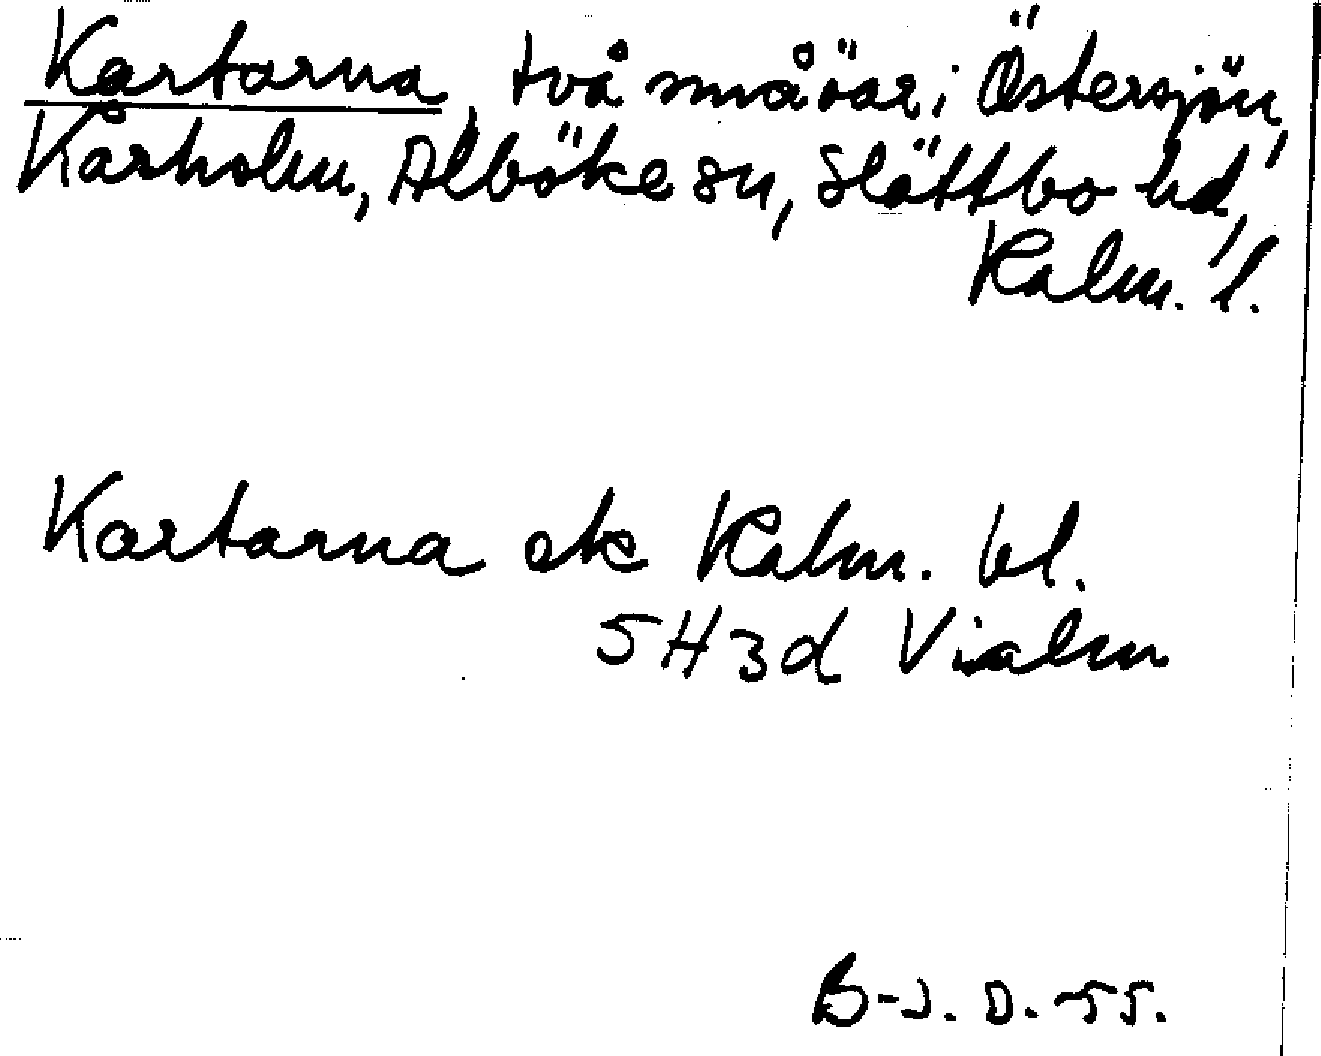 Kartarna, två småöar i Östersjön,
Kårholm, Alböke sn, Slättbo hd,
Kalm. l.
Kartarna ek Kalm. bl.
5H3d Vialm
B-J. D. -55.